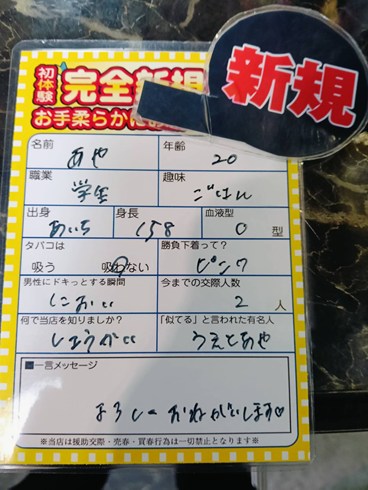 新規
初体験 完全新規
お手柔らかにお
名前 あや 年齢 20
職業 学生 趣味 ごはん
出身 あいち 身長 158 血液型 O 型
タバコは 吸う 吸わない 勝負下着って? ピンク
男性にドキっとする瞬間 におい 今までの交際人数 2 人
何で当店を知りましたか? しょうかい 「似てる」と言われた有名人 うえとあや
■一言メッセージ
よろしくおねがいします♡
※当店は援助交際・売春・買春行為は一切禁止となります※